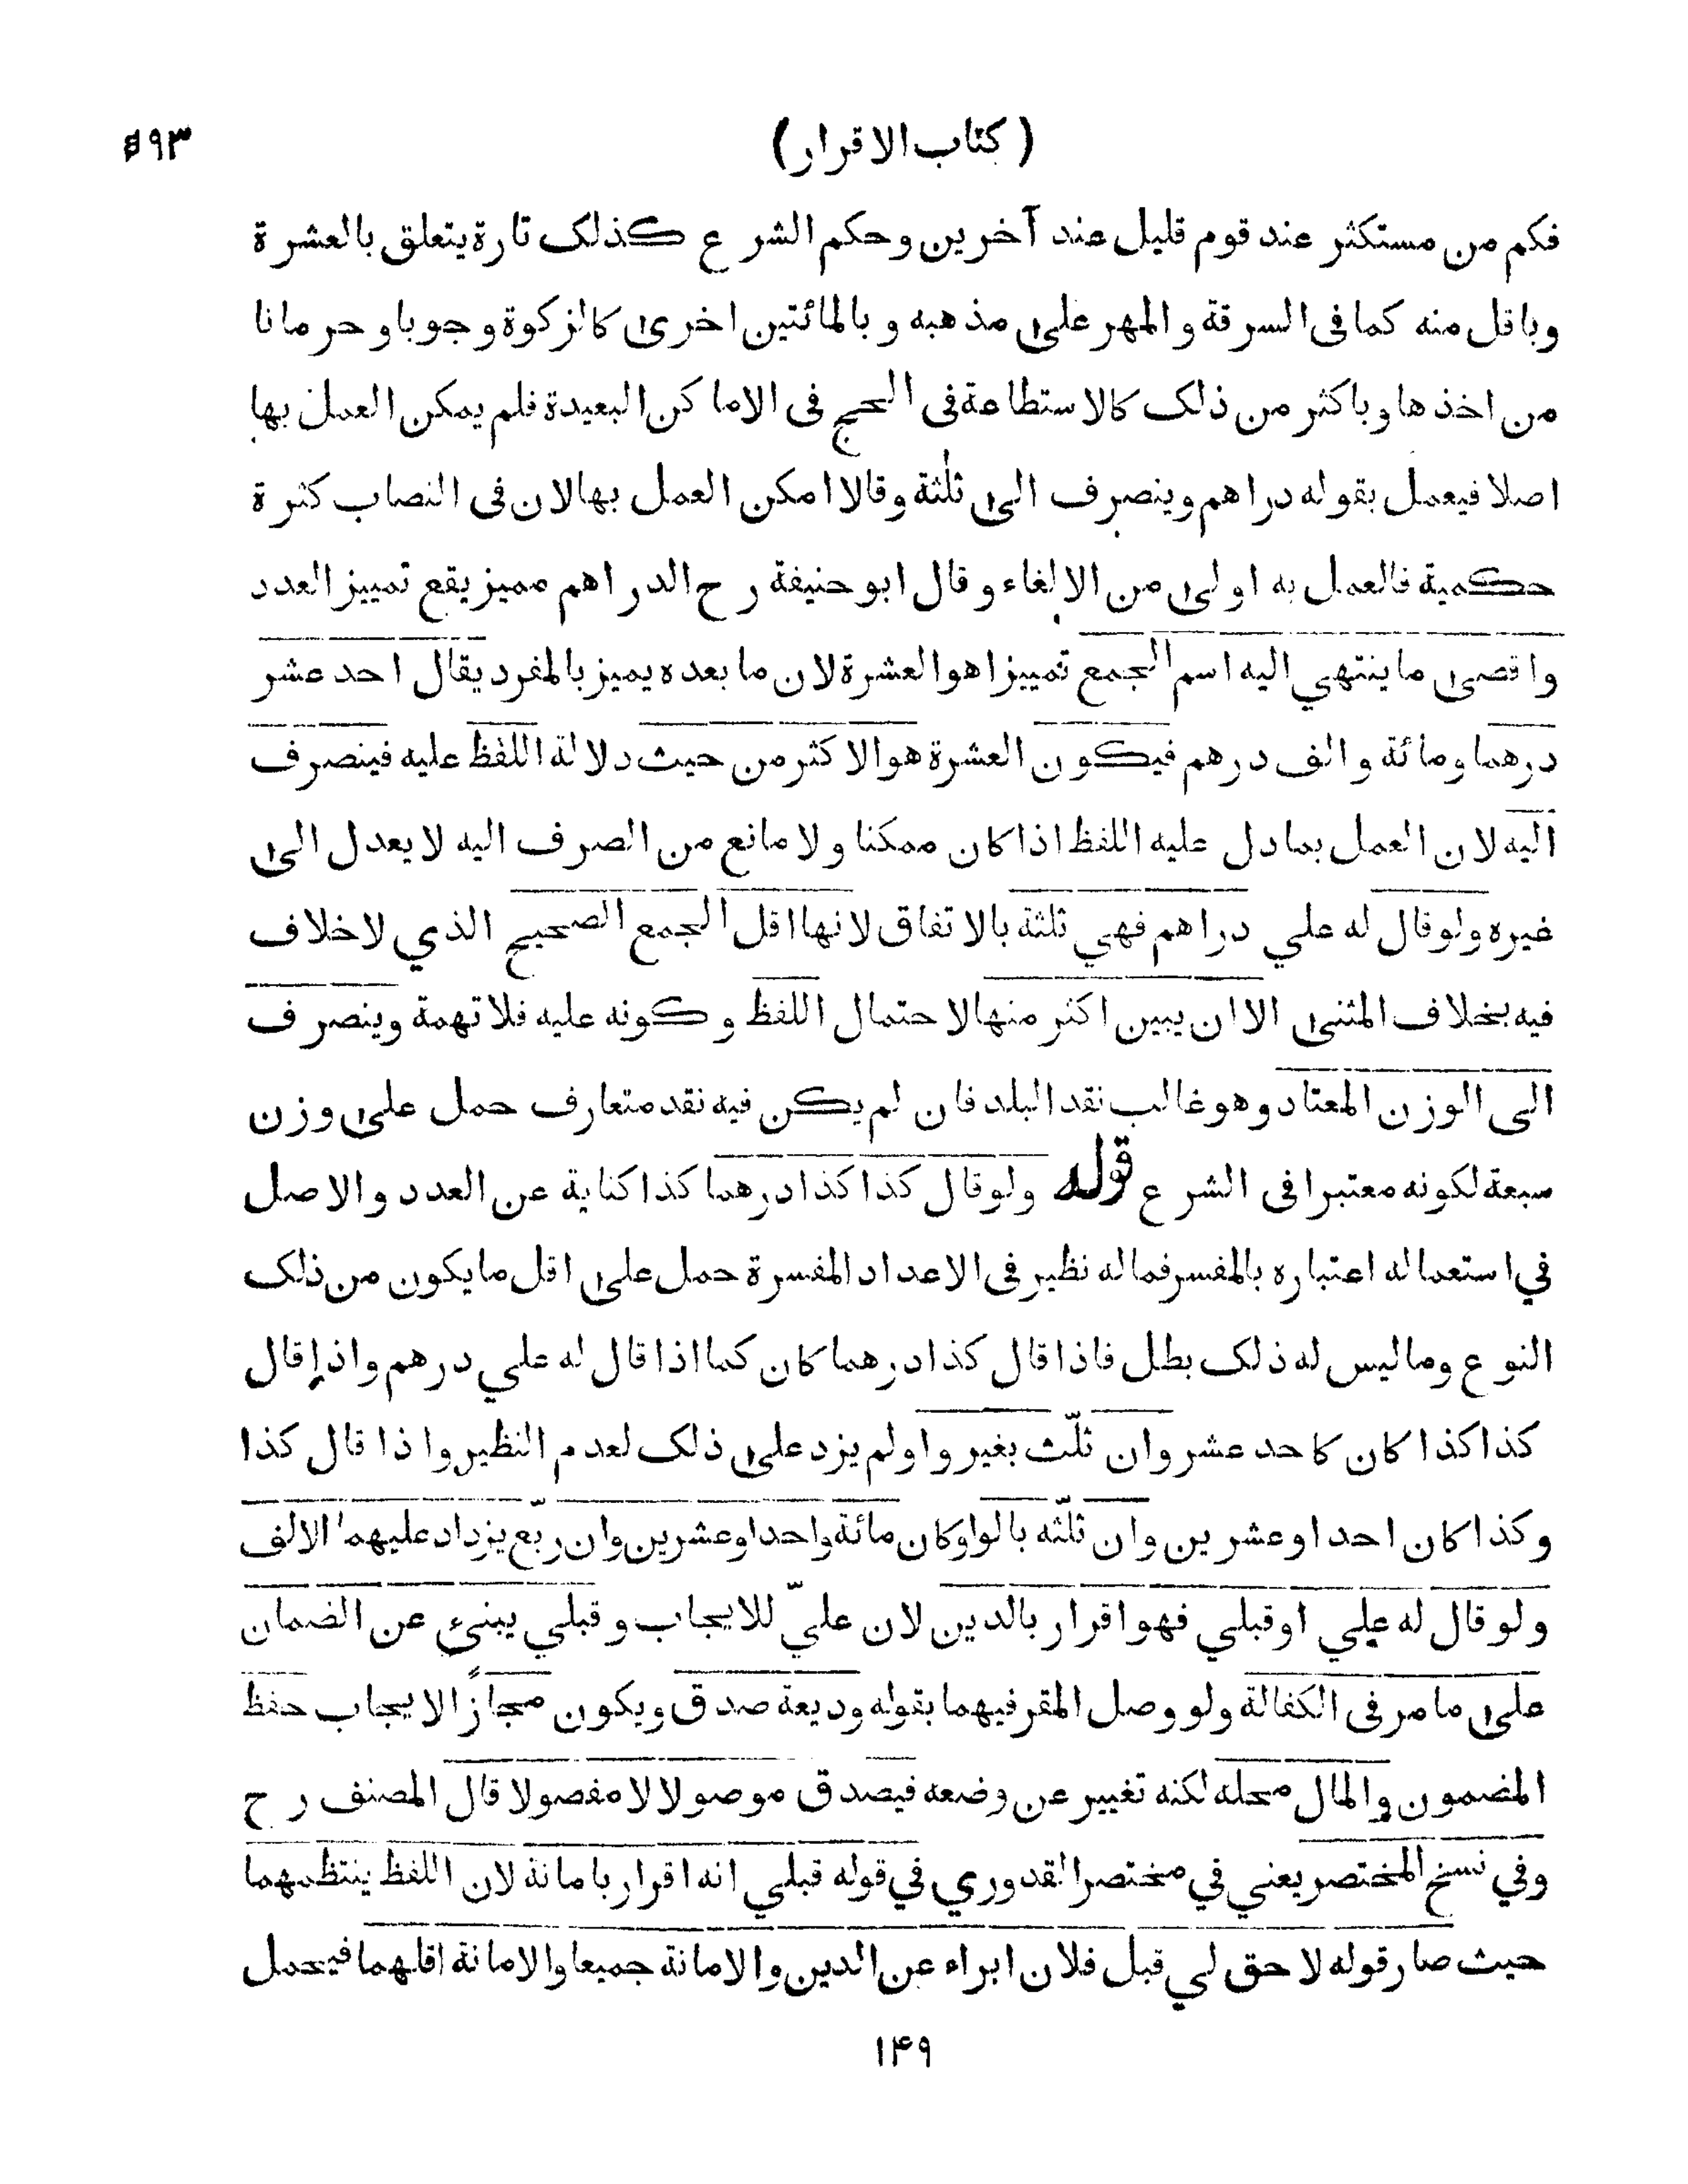 (كتاب الاقرار)
فكم من مستكثر عند قوم قليل عند آخرين وحكم الشرع كذلك تارة يتعلق بالعشرة
وباقل منه كما فى السرقة والمهر على مذهبه وبالمائتين اخرى كالزكوة وجوبا وحرمانا
من اخذها وباكثر من ذلك كالاستطاعة فى الحج فى الاماكن البعيدة فلم يمكن العمل بها
اصلا فيعمل بقوله دراهم وينصرف الى ثلثة وقالا امكن العمل بها لان فى النصاب كثرة
حكمية فالعمل به اولى من الالغاء وقال ابو حنيفة رح الدراهم مميز يقع تمييز العدد
واقصى ما ينتهي اليه اسم الجمع تمييزا هو العشرة لان ما بعده يميز بالمفرد يقال احد عشر
درهما ومائة والف درهم فيكون العشرة هو الاكثر من حيث دلالة اللفظ عليه فينصرف
اليه لان العمل بما دل عليه اللفظ اذا كان ممكنا ولا مانع من الصرف اليه لا يعدل الى
غيره ولو قال له علي دراهم فهي ثلثة بالاتفاق لانها اقل الجمع الصحيح الذي لا خلاف
فيه بخلاف المثنى الا ان يبين اكثر منها لاحتمال اللفظ وكونه عليه فلا تهمة وينصرف
الى الوزن المعتاد وهو غالب نقد البلد فان لم يكن فيه نقد متعارف حمل على وزن
سبعة لكونه معتبرا فى الشرع قوله ولو قال كذا كذا درهما كذا كناية عن العدد والاصل
في استعماله اعتباره بالمفسر فما له نظير فى الاعداد المفسرة حمل على اقل ما يكون من ذلك
النوع وما ليس له ذلك بطل فاذا قال كذا درهما كان كما اذا قال له علي درهم واذا قال
كذا كذا كان كاحد عشر وان ثلّث بغير واو لم يزد على ذلك لعدم النظير واذا قال كذا
وكذا كان احدا وعشرين وان ثلّثه بالواو كان مائة واحدا وعشرين وان ربّع يزداد عليهما الالف
ولو قال له علي او قبلي فهو اقرار بالدين لان عليّ للايجاب وقبلي يبنئ عن الضمان
على ما مر فى الكفالة ولو وصل المقر فيهما بقوله وديعة صدق ويكون مجازًا لايجاب حفظ
المضمون والمال محله لكنه تغيير عن وضعه فيصدق موصولا لا مفصولا قال المصنف رح
وفي نسخ المختصر يعني في مختصر القدوري في قوله قبلي انه اقرار بامانة لان اللفظ ينتظمهما
حيث صار قوله لا حق لي قبل فلان ابراء عن الدين والامانة جميعا والامانة اقلهما فيحمل
۱۴۹